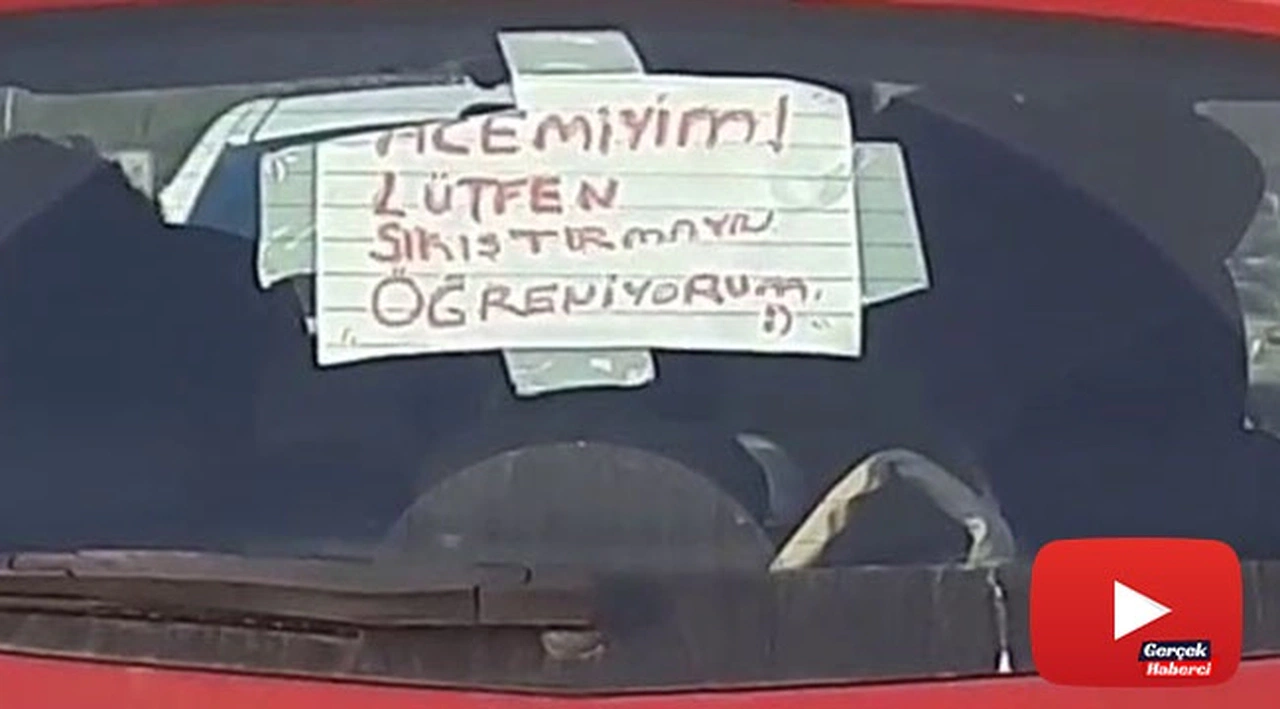 ACEMİYİM!
LÜTFEN
SIKIŞTIRMAYN
ÖĞRENİYORUM.
:)
Gerçek
Haberci